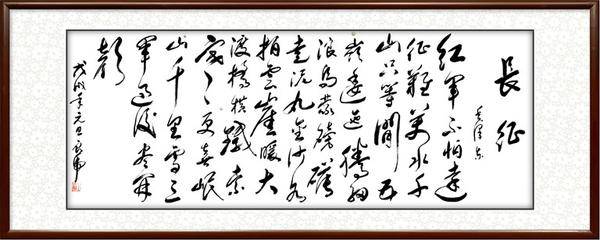 長征
毛澤东
红軍不怕遠
征難萬水千
山只等閒五
嶺逶迤騰細
浪烏蒙磅礴
走泥丸金沙水
拍雲崖暖大
渡橋横鐵索
寒更喜岷
山千里雪三
軍過後盡開
颜
戊戌年元旦